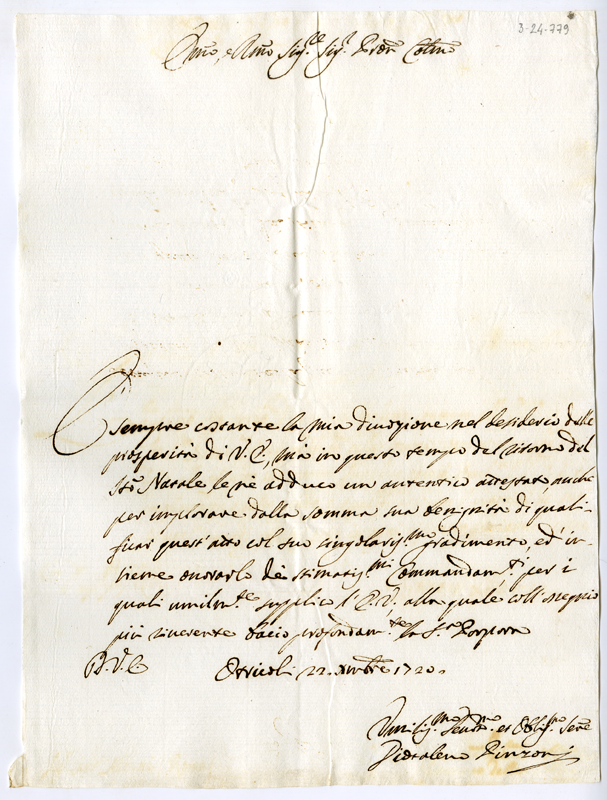 3-24-779
Em̃o, e Rm̃o Sig.re Sig.r Pr̃on Col̃mo
È
sempre costante la mia divozione nel desiderio delle
prosperità di V. E., mà in questo tempo del ritorno del
Sto Natale, le ne adduco un autentico attestato, anche
per implorare dalla somma sua benignità di quali-
ficar quest'atto col suo singolariss.mo gradimento, ed in-
sieme onorarlo de stimatiss.mi Commandam.ti per i
quali umilm.te supplico l'E. V. alla quale coll'ossequio
più riverente bacio profondam.te la S.ra Porpora
D. V. E. Otricoli 22. Xmbre 1720.
Umiliss.mo Devot.mo et Obblig.mo Serre
Pinzoni